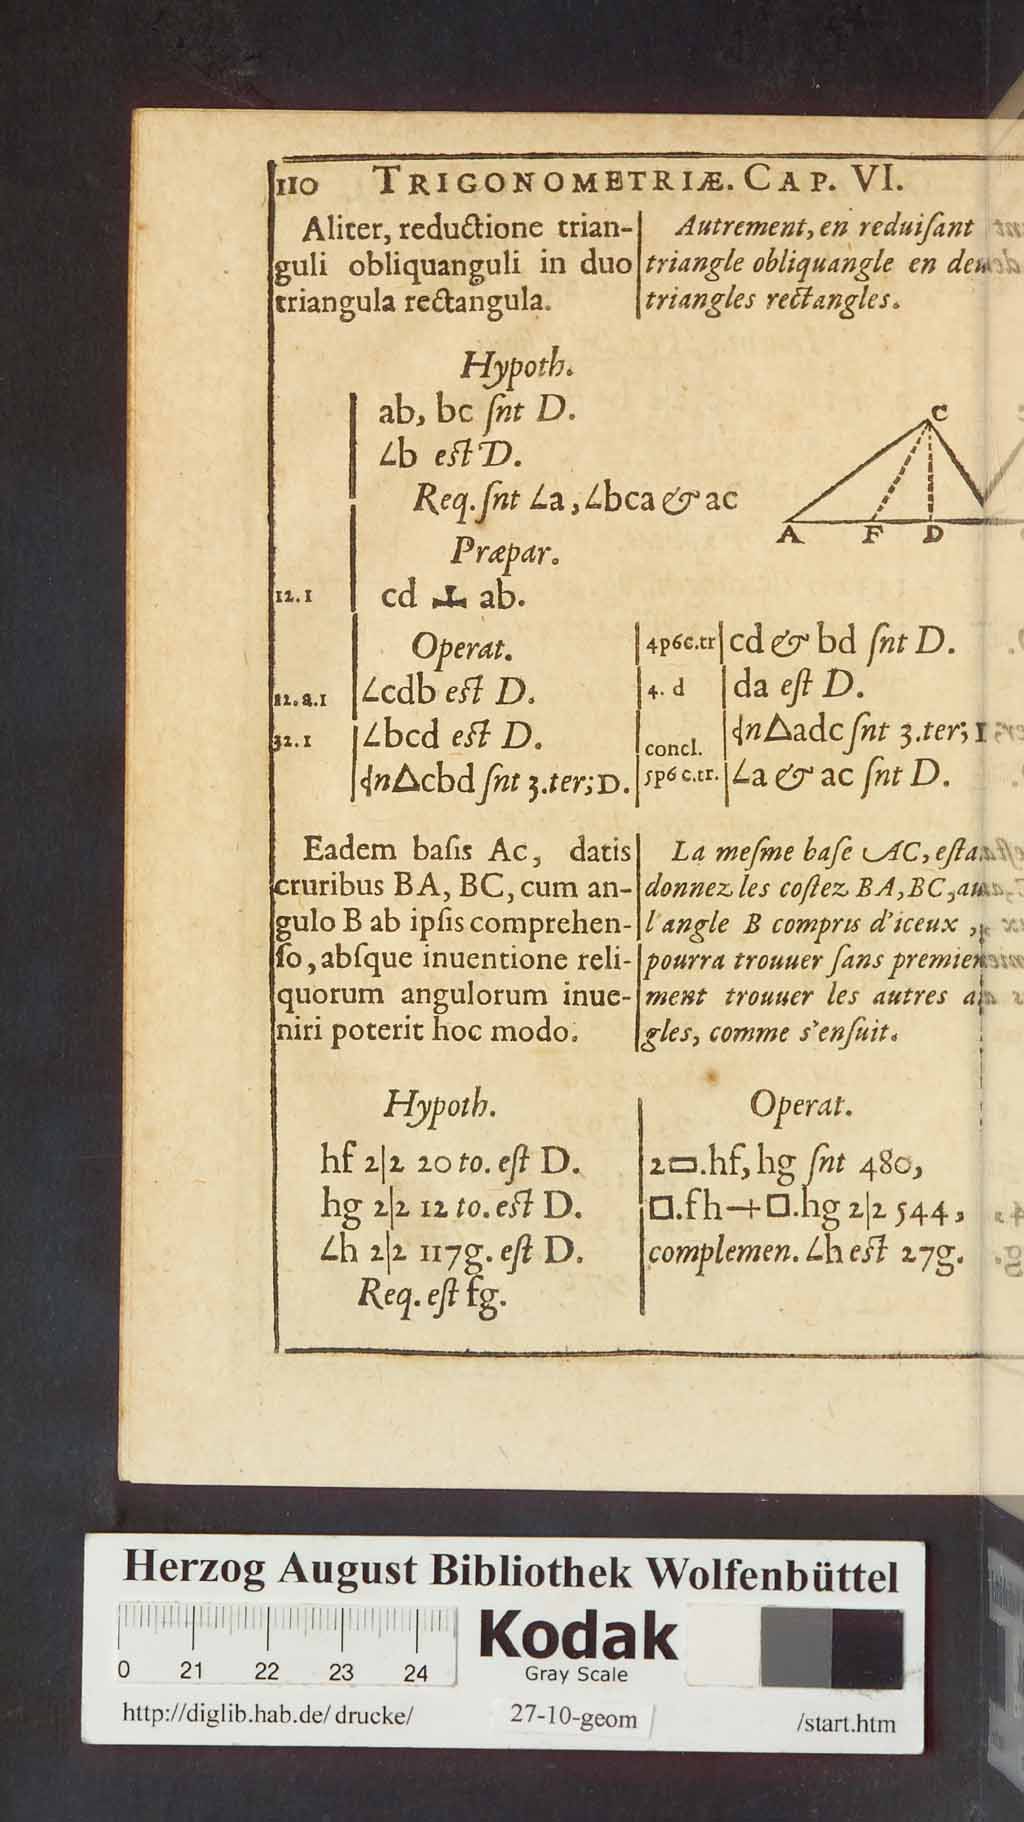 110 TRIGONOMETRIÆ. CAP. VI.
Aliter, reductione trian-
guli obliquanguli in duo
triangula rectangula.
Autrement, en reduiſant
triangle obliquangle en
triangles rectangles.
Hypoth.
ab, bc ſnt D.
∠b eſt D.
Req. ſnt ∠a, ∠bca & ac
C
A F D
Præpar.
12.1 cd ⊥ ab.
Operat.
12.a.1 ∠cdb eſt D.
32.1 ∠bcd eſt D.
△cbd ſnt 3.ter; D.
4p6c.tr cd & bd ſnt D.
4. d da eſt D.
concl. △adc ſnt 3.ter;
5p6c.tr. ∠a & ac ſnt D.
Eadem baſis Ac, datis
cruribus BA, BC, cum an-
gulo B ab ipſis comprehen-
ſo, abſque inuentione reli-
quorum angulorum inue-
niri poterit hoc modo.
La meſme baſe AC,
donnez les coſtez BA, BC,
l'angle B compris d'iceux,
pourra trouuer ſans premie
ment trouuer les autres
gles, comme s'enſuit.
Hypoth.
hf 2|2 20 to. eſt D.
hg 2|2 12 to. eſt D.
∠h 2|2 117g. eſt D.
Req. eſt fg.
Operat.
2▭.hf, hg ſnt 480,
□.fh + □.hg 2|2 544,
complemen. ∠h eſt 27g.
Herzog August Bibliothek Wolfenbüttel
0 21 22 23 24
Kodak
Gray Scale
http://diglib.hab.de/drucke/ 27-10-geom /start.htm